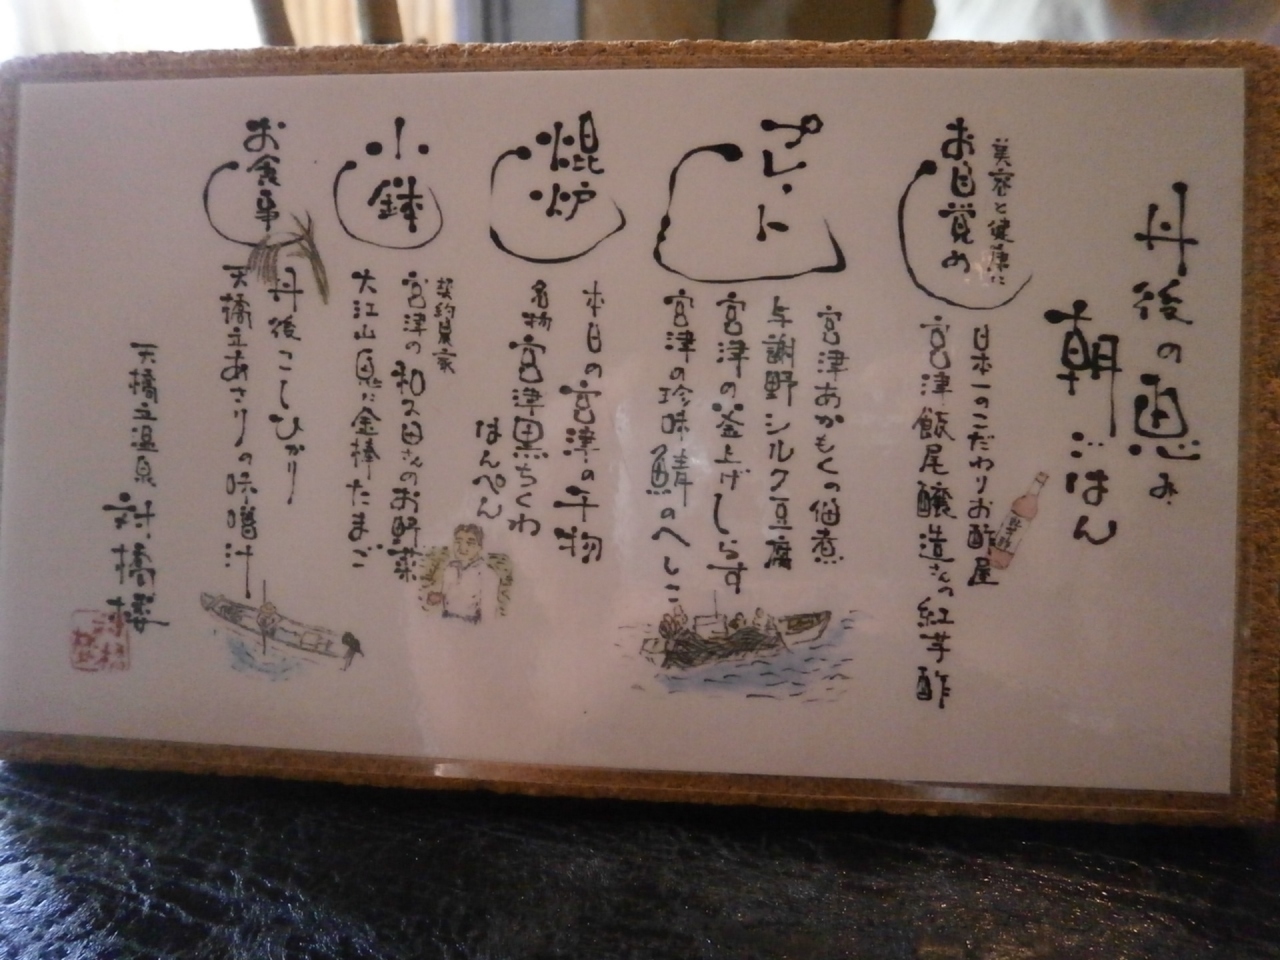 丹後の恵み
朝ごはん
美容と健康に
お目覚め
日本一のこだわりお酢屋
宮津飯尾醸造さんの紅芋酢
プレート
宮津あかもくの佃煮
与謝野シルク豆腐
宮津の釜上げしらす
宮津の珍味鯖のへしこ
焜炉
本日の宮津の干物
名物宮津黒ちくわ
はんぺん
小鉢
契約農家
宮津の和久田さんのお野菜
大江山鬼に金棒たまご
お食事
丹後こしひかり
天橋立あさりの味噌汁
天橋立温泉 対橋楼